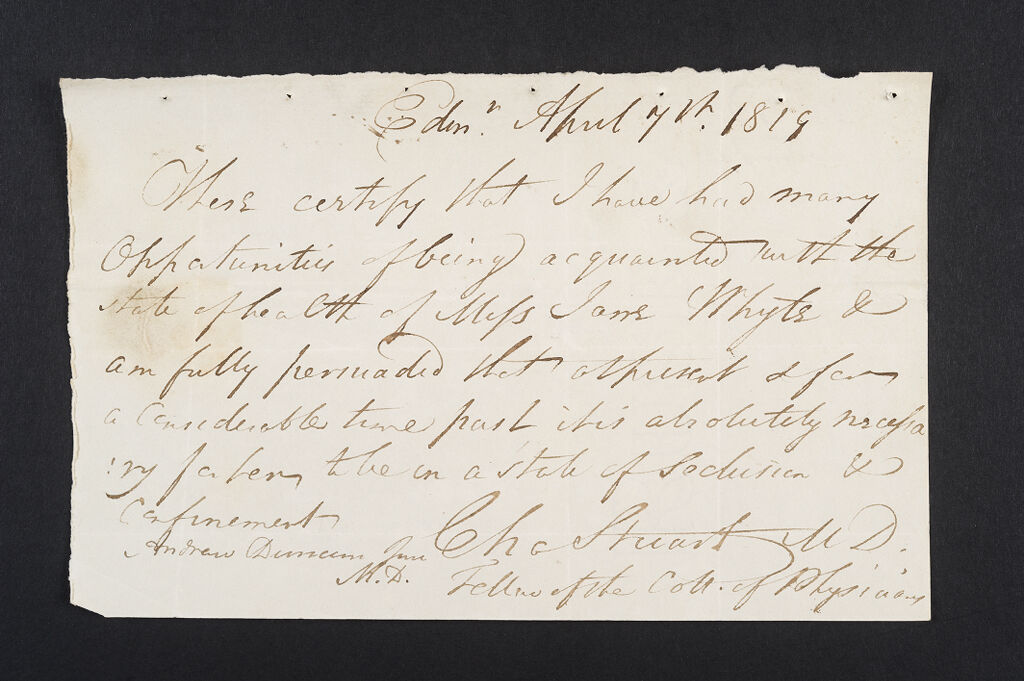 Edinr. April 7th. 1819
These certify that I have had many
Opportunities of being acquainted with the
state of health of Miss Jane Whyte &
am fully persuaded that at present & for
a considerable time past it is absolutely necessa
:ry for her to be in a state of Seclusion &
Confinement
Chs Stuart M D.
Fellow of the Coll. of Physicians
Andrew Duncan Jun
M.D.